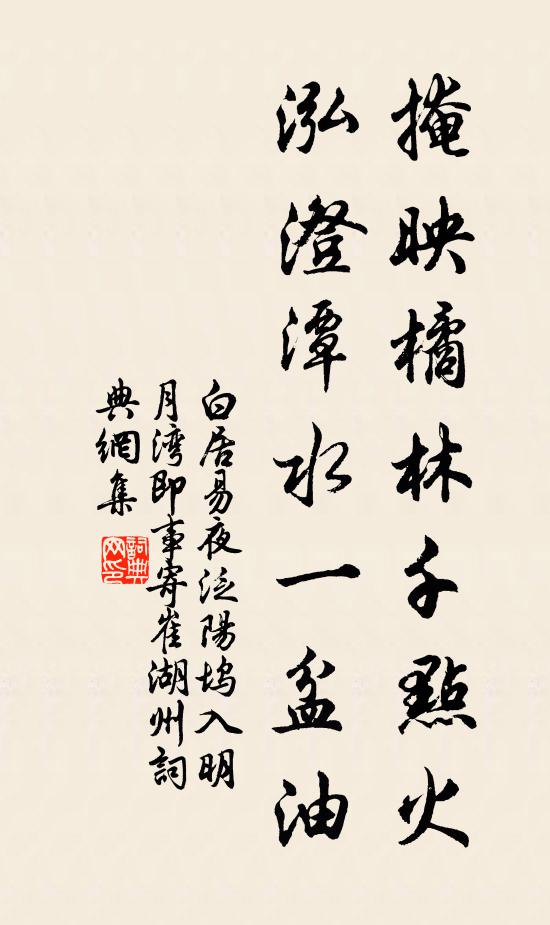 掩映橘林千點火
泓澄潭水一盆油
白居易夜泛陽塢入明
月湾即事寄崔湖州詞
典網集
詞典
网印